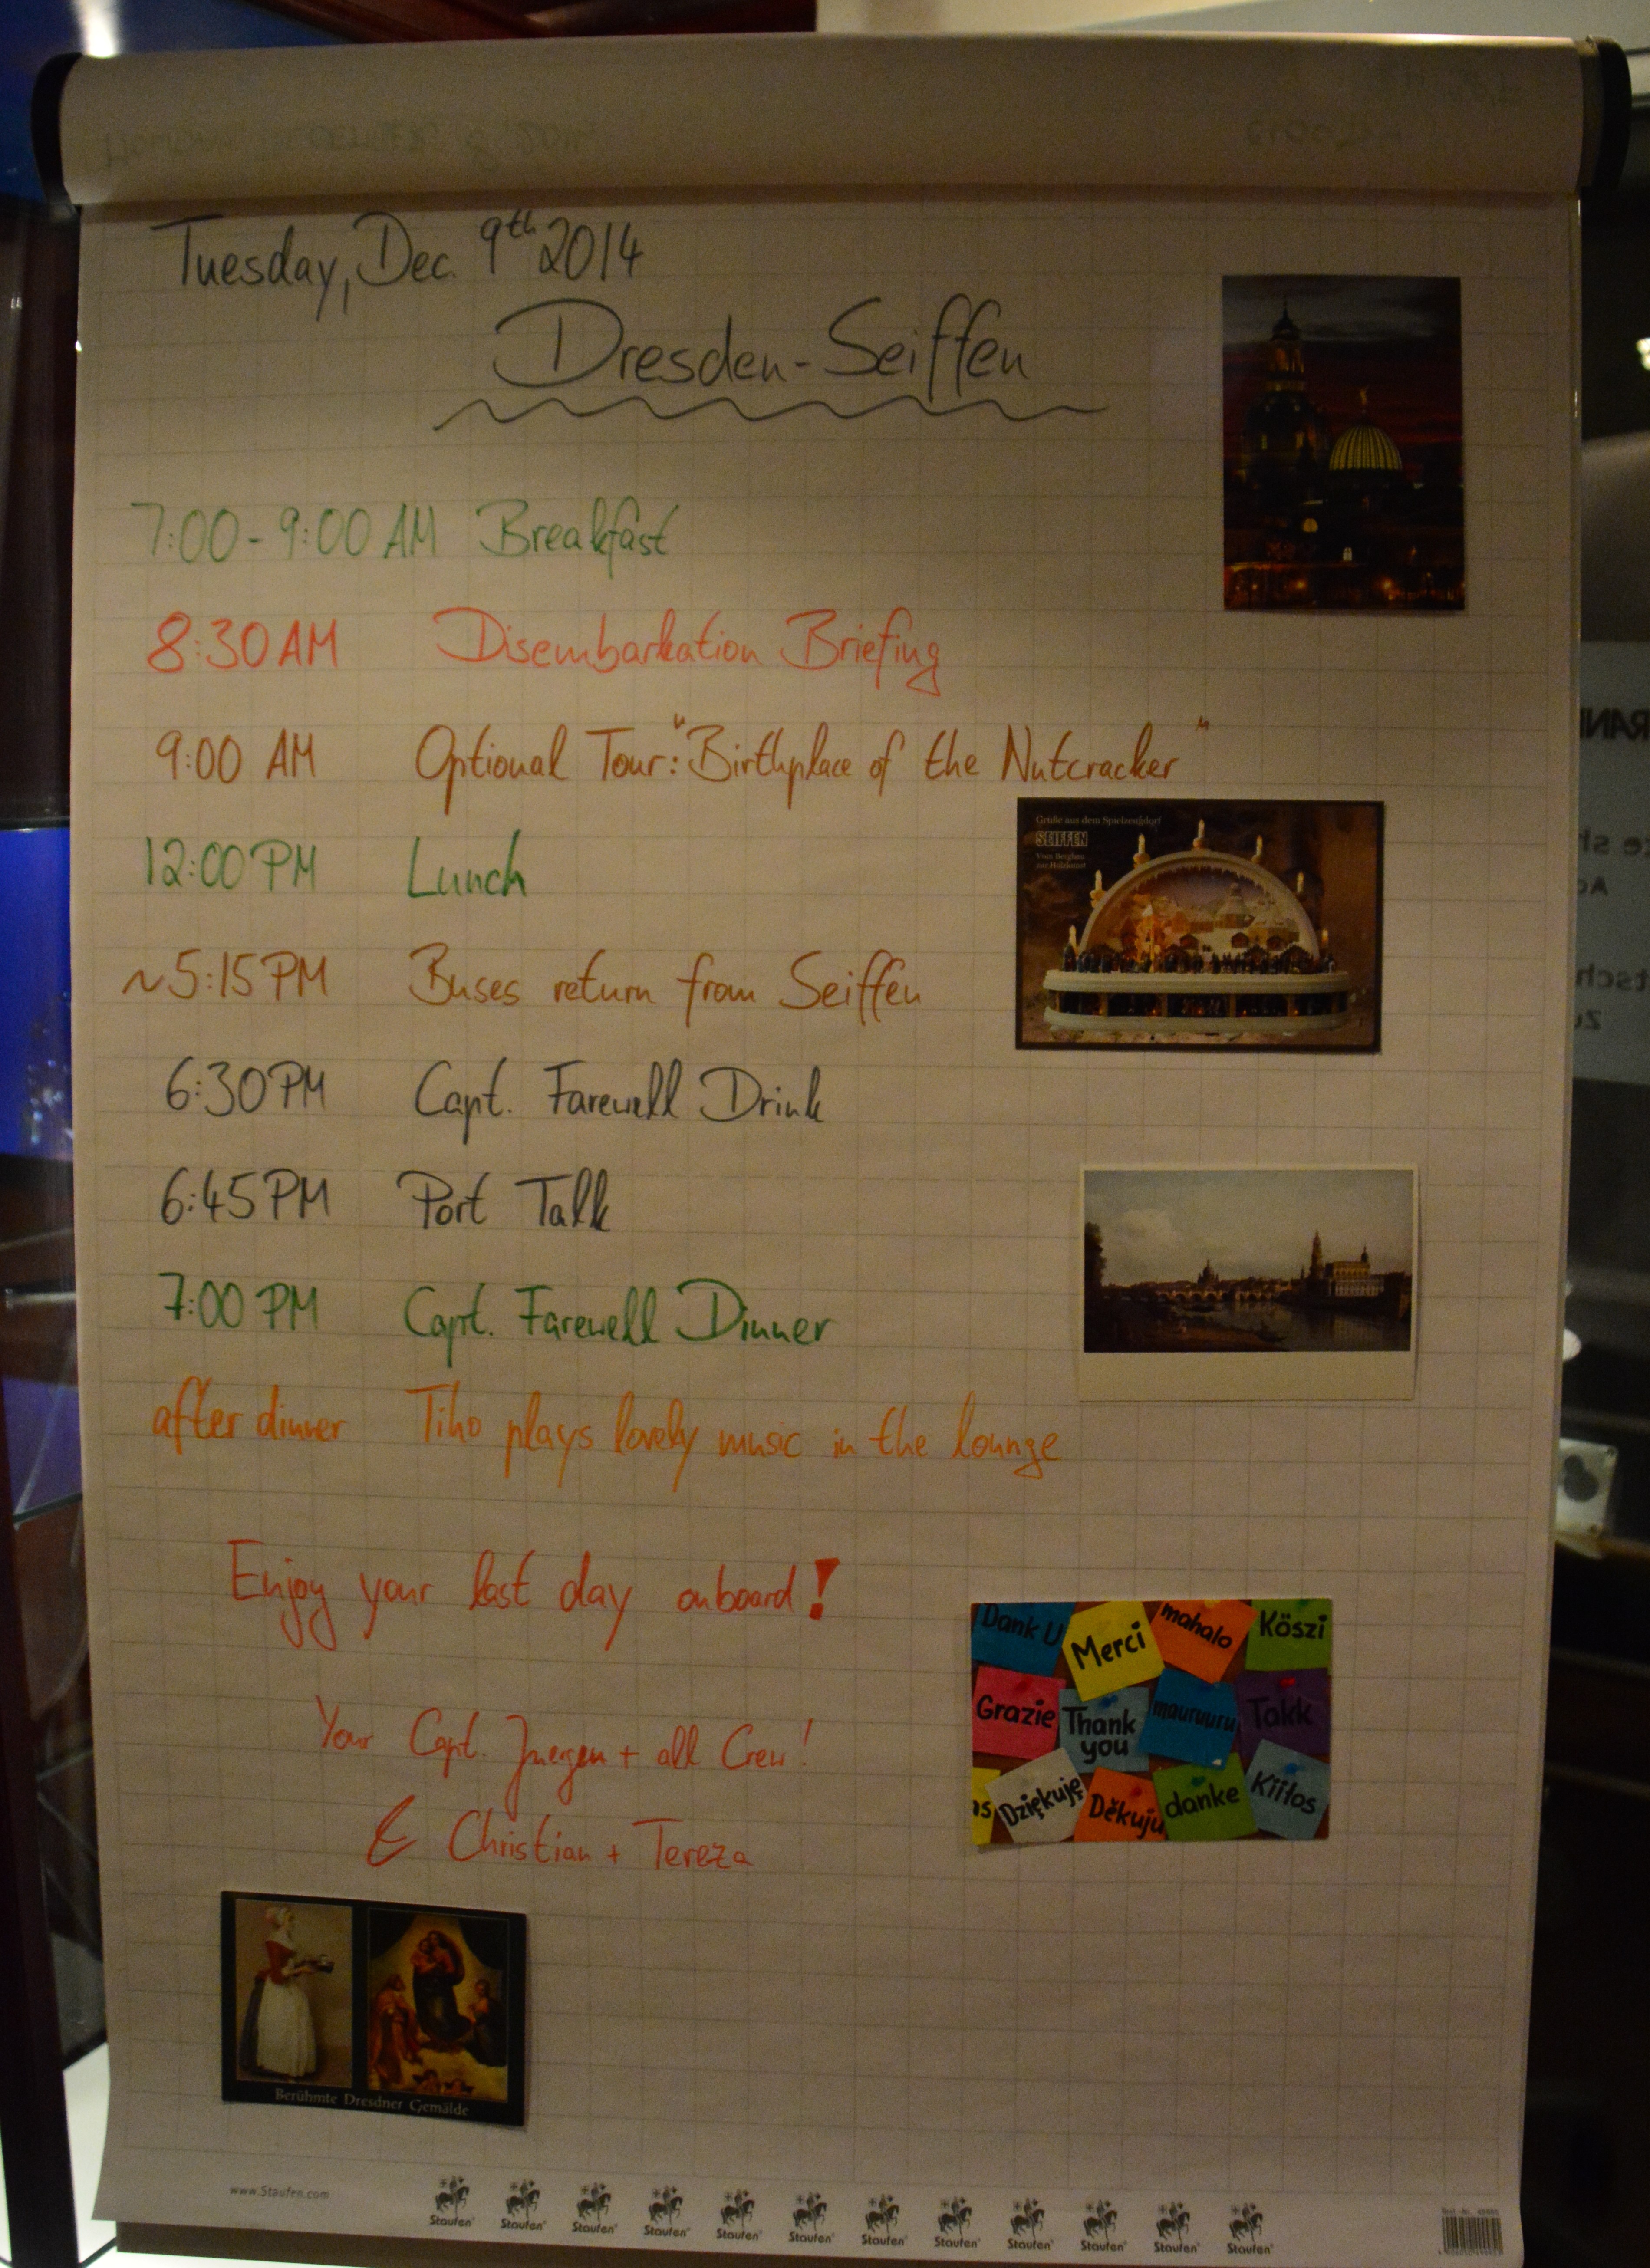 Tuesday, Dec. 9th 2014
Dresden-Seiffen
7:00-9:00 AM Breakfast
8:30 AM Disembarkation Briefing
9:00 AM Optional Tour: "Birthplace of the Nutcracker"
12:00 PM Lunch
Grüße aus dem Spielzeugdorf
SEIFFEN
Vom Bergbau
zur Holzkunst
~5:15 PM Buses return from Seiffen
6:30 PM Capt. Farewell Drink
6:45 PM Port Talk
7:00 PM Capt. Farewell Dinner
after dinner Tiho plays lovely music in the lounge
Enjoy your last day onboard!
Dank U Merci mahalo Köszi
Grazie Thank you mauruuru Takk
Dziękuję Děkuju danke Kiitos
Your Capt. Juergen + all Crew!
& Christian + Tereza
Berühmte Dresdner Gemälde
www.Staufen.com
Staufen Staufen Staufen Staufen Staufen Staufen Staufen Staufen Staufen Staufen Staufen Staufen